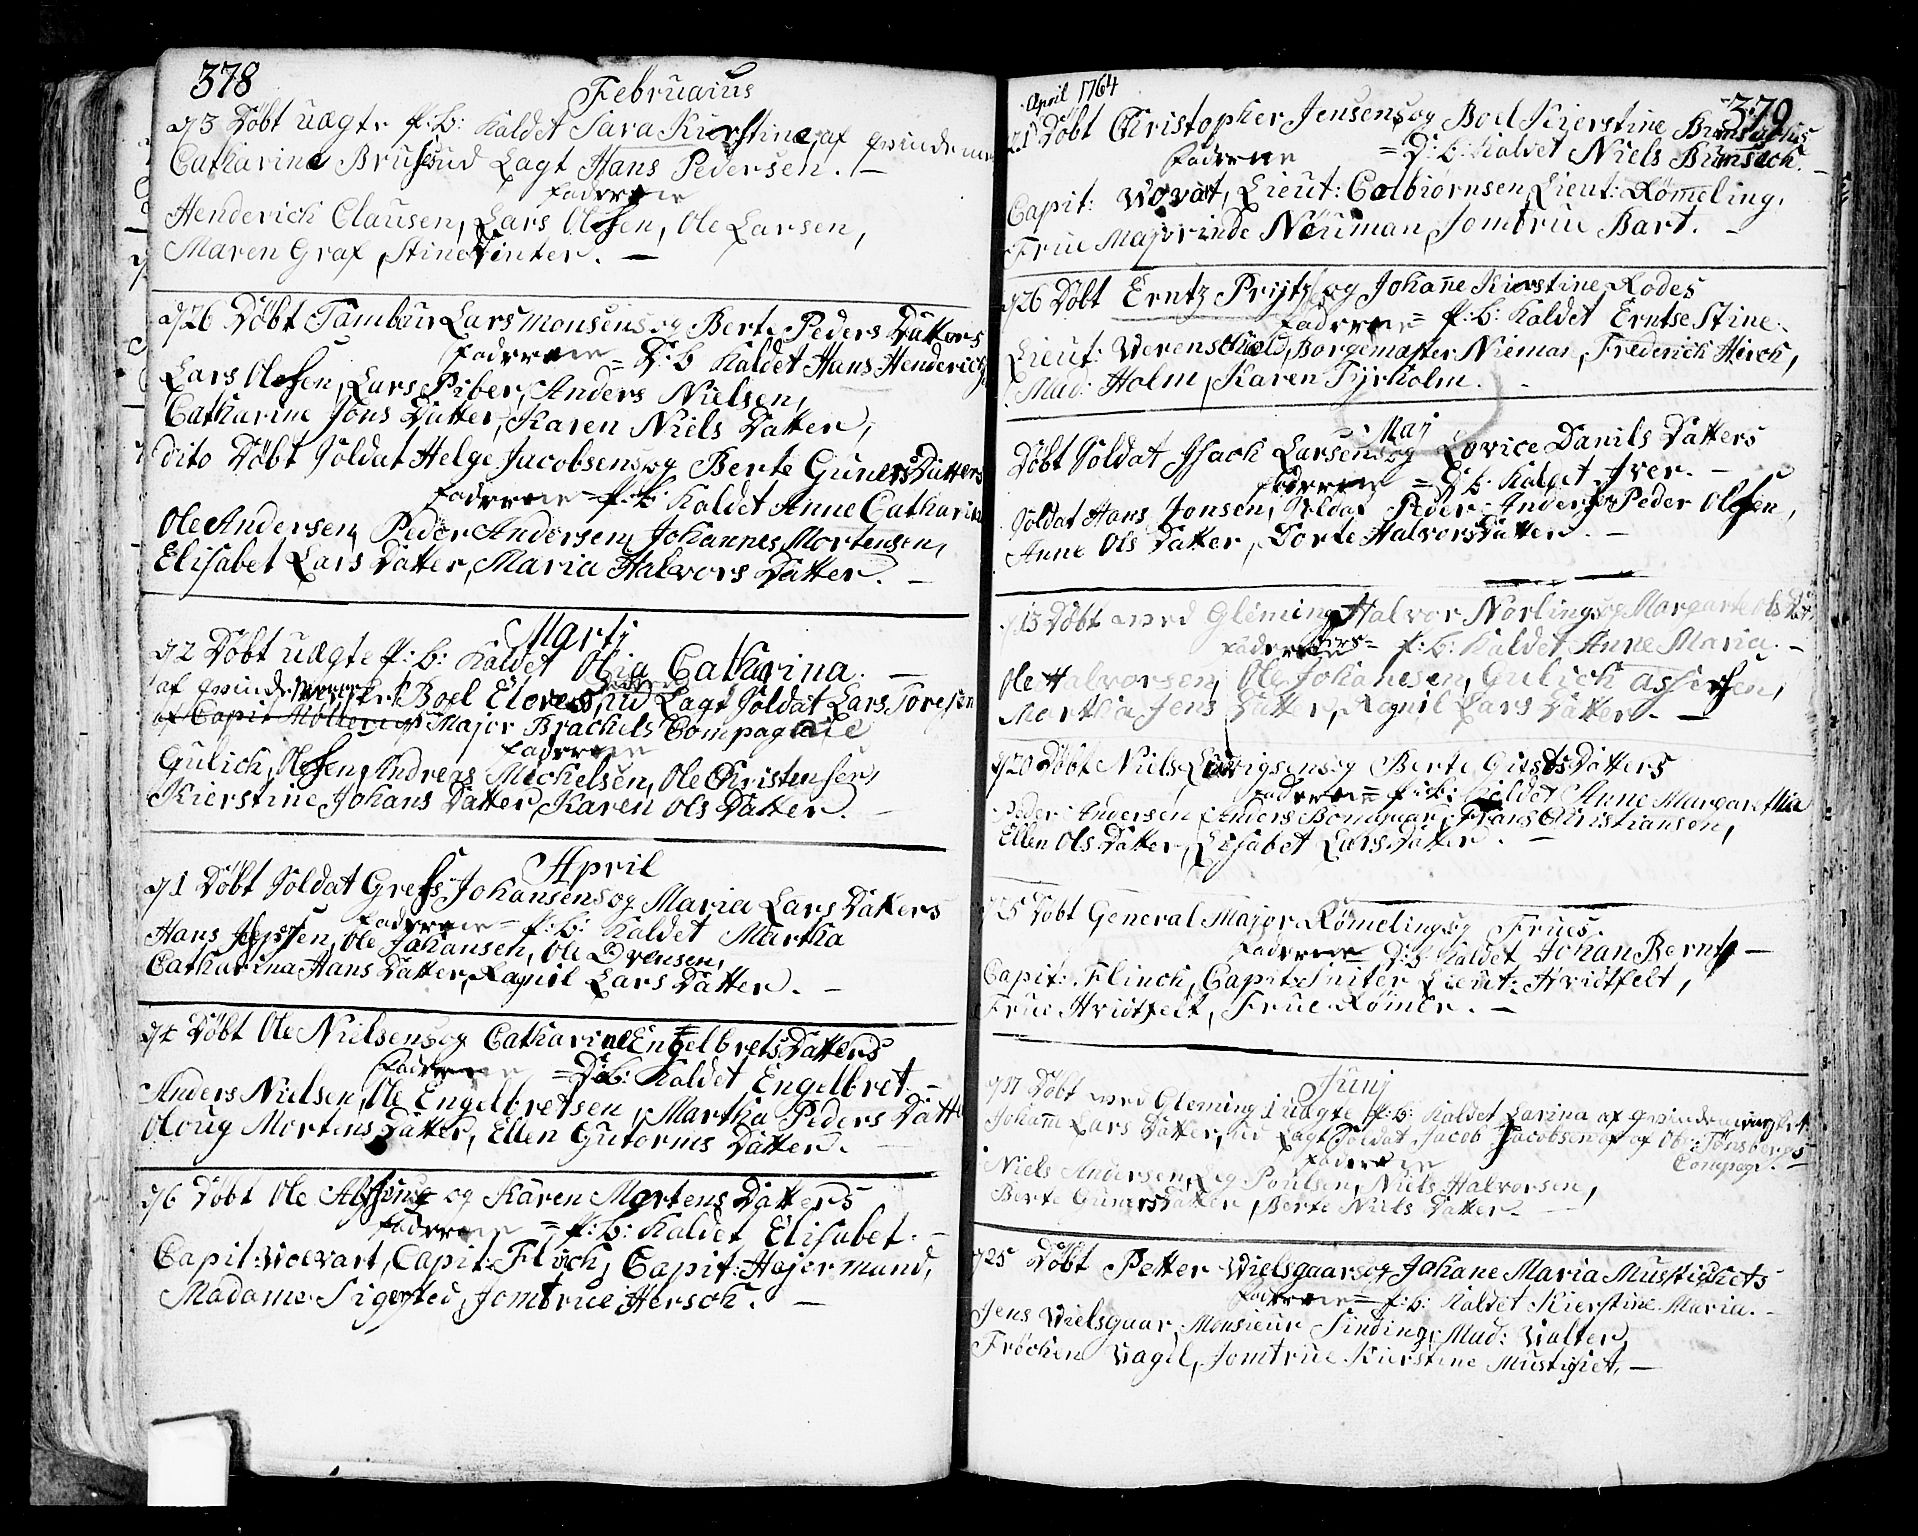 378
Februarius
d 3 Døbt uægte p: b: kaldet Sara Kierstine, af qvinde
Catharina Udlagt Hans Pedersen. —
Fadderne
Henderich Clausen, Lars Olssen, Ole Larsen,
Maren Graf, Stine Vinter. —
d 26 Døbt Tambur Lars Monsens og Berte Peders Datters
Fadderne = D: b kaldet Hans Henderich
Lars Olssen, Lars Piber, Anders Nielsen,
Catharine Jons Datter, Karen Niels Datter,
dito Døbt Soldat Helge Jacobsens og Berte Guners Datters
Fadderne = p: b: kaldet Anne Catharina
Ole Andersen, Peder Andersen, Johannes Mortensen,
Elisabet Lars Datter, Maria Halvors Datter. —
Martj
d 2 Døbt uægte p: b: kaldet Olia Catharina. —
af qvinde Boel ud Lagt Soldat Lars Toresen
Major Brachels Compagnie
Fadderne
Gulich Olssen, Andreas Michelsen, Ole Christensen,
Kierstine Johans Datter, Karen Ols Datter. —
April
d 1 Døbt Soldat Johansens og Maria Lars Datters
Fadderne = p: b: kaldet Martha
Hans Jepsen, Ole Johansen, Ole
Catharina Hans Datter, Ragnil Lars Datter. —
Døbt Ole Nielsens og Catharine Engelbrets Datters
Fadderne = D: b: kaldet Engelbret —
Anders Nielsen, Ole Engelbretsen, Martha Peders Datt
Oloug Mortens Datter, Ellen Gutorms Datter. —
d 6 Døbt Ole og Karen Mortens Datters
Fadderne = p: b: kaldet Elisabet. —
Capit: Capit: Capit: Hajermand,
Madame Sigersted, Jomfrue Hersch. —
April 1764
379
d 21 Døbt Christopher Jensens og Boel Kierstine
Fadderne = D: b: kaldet Niels
Capit: Lieut: Colbiørnsen, Lieut: Rømeling,
Frue Majorinde Neuman, Jomfrue Bart. —
d 26 Døbt Erntz og Johanne Kierstine Rodes
Fadderne = p: b: kaldet Erntse Stine.
Lieut: Verenskiold, Borgemæster Nieman, Frederich Hirch,
Mad: Holm, Karen Fyrholm.
Maj
Døbt Soldat Isach Larsens og Lovice Danils Datters
Fadderne = D: b: kaldet Iver. —
Soldat Hans Jonsen, Soldat Peder Anders: Peder Olssen,
Anne Ols Datter, Dorte Halvors Datter. —
d 13 Døbt med Gleming Halvor Nørlings og Margarte Ols Dat:
Fadderne = p: b: kaldet Anne Maria. —
Ole Halvorsen, Ole Johannesen, Gulich Assersen,
Martha Jens Datter, Ragnil Lars Datter. —
d 20 Døbt Niels Ludvigsens og Berte Datters
Fadderne = p: b: kaldet Anne Margaretha
Peder Andersen, Anders Frans Christiansen,
Ellen Ols Datter, Lisabet Lars Datter. —
Døbt General Major Rømelings og Frues.
Fadderne = D: b: kaldet Johan Bernt —
Capit: Flinch, Capit: Lieut: Hvidtfelt,
Frue Hvidtfelt, Frue Rømer. —
Junj
d 17 Døbt med Gleming 1 uægte p: b: kaldet Larina af
Johanne Lars Datter, ud Lagt Soldat Jacob Jacobsen af Obr: Tønsbergs
Fadderne Compagn. —
Niels Andersen, Poulsen, Niels Halvorsen,
Berte Guners Datter, Berte Niels Datter. —
d 25 Døbt Petter Vielsgaars og Johane Maria
Fadderne = p: b: kaldet Kierstine Maria. —
Jens Vielsgaar, Monsieur Sinding, Mad: Valter,
Frøchen Vagel, Jomfrue Kierstine —